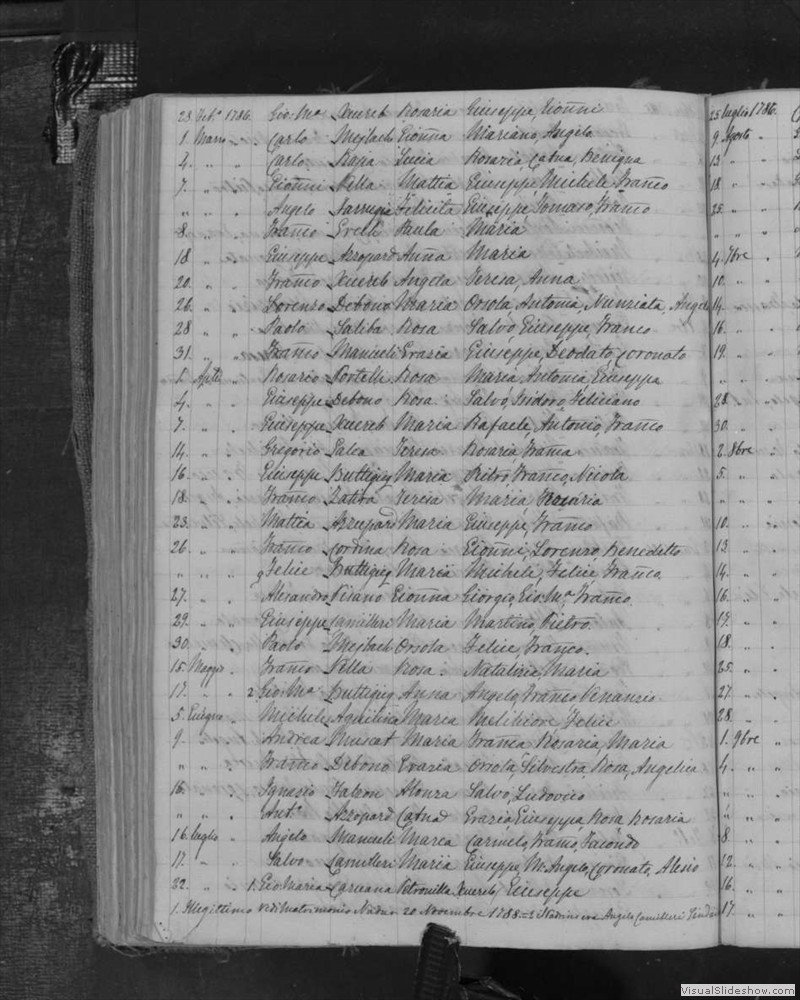 23 Feb.o 1786. Gio: Ma. Xuereb Rosaria Giuseppe, Gioñni
1. Marzo " " Carlo Mejlach Gioñna Mariano, Angelo
4. " " Carlo Rosa Lucia Rosaria, Catna, Benigna
7. " " Gioñni Vella Mattia Giuseppe, Michele, Franco
" " " Angelo Farrugia Felicita Giuseppe, Tomaso, Franco
8. " " Franco Grech Paula Maria
18 " " Giuseppe Azzopard Anña Maria
20. " " Franco Xuereb Angela Teresa, Anna
26. " " Lorenzo Debono Maria Orsola, Antonia, Nunziata, Angela
28 " " Paolo Saliba Rosa Salvo, Giuseppe, Franco
31. " " Franco Manueli Grazia Giuseppe, Deodato, Coronato
1. Aple " Rosario Portelli Rosa Maria, Antonia, Giuseppa
4. " " Giuseppe Debono Rosa Salvo, Isidoro, Feliciano
7. " " Giuseppe Xuereb Maria Rafaele, Antonio, Franco
14. " " Gregorio Teresa Rosaria, Franca
16. " " Giuseppe Buttigieg Maria Pietro, Franco, Nicola
18. " " Franco Teresa Maria, Rosaria
23. " " Mattia Azzopard Maria Giuseppe, Franco
26. " " Franco Cordina Rosa Gioñni, Lorenzo, Benedetto
" " " Felice Buttigieg Maria Michele, Felice, Franco
27. " " Alesandro Pisano Gioñna Giorgio, Gio: Ma., Franco
29. " " Giuseppe Camilleri Maria Martino, Pietro
30. " " Paolo Mejlach Orsola Felice, Franco.
15. Maggio " Franco Vella Rosa Natalizia, Maria
17. " " 2. Gio: Ma. Buttigieg Anna Angelo, Franco Venanzio
5. Giugno " Michele Aquilina Maria Melchiore, Felice
9. " " Andrea Muscat Maria Franca Rosaria, Maria
" " " Franco Debono Grazia Orsola, Silvestra, Rosa, Angelica
15. " " Ignazio Falzon Salvo, Ludovico
" " " Anto. Azzopard Catna Grazia, Giuseppa, Rosa Rosaria
16. luglio " Angelo Manueli Maria Carmelo, Franco, Facondo
17. " " Salvo Camilleri Maria Giuseppe, M. Angelo, Coronato, Alesio
22. " " 1. Gio Maria Caruana Petronilla Xuereb, Giuseppe
1. Illegittimo Vedi Matrimonio Nadur 20 Novembre 1788 Angelo Camilleri
25 luglio 1786.
9. Agosto "
13 " "
18 " "
25. " "
" " "
4. 7bre "
10. " "
14. " "
16. " "
19. " "
" " "
28. " "
30. " "
2. 8bre "
5. " "
" " "
10. " "
13 " "
14. " "
16. " "
17. " "
18. " "
25. " "
27. " "
28. " "
1. 9bre "
4. " "
" " "
" " "
8. " "
12. " "
16. " "
17. " "
VisualSlideshow.com